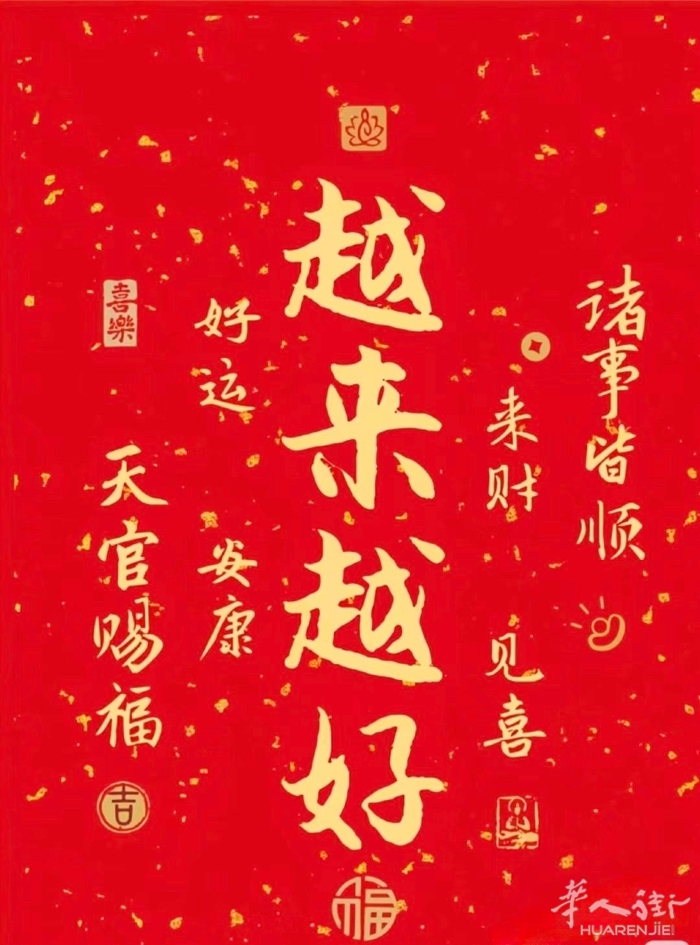 诸事皆顺
来财
见喜
越来越好
福
好运
安康
喜樂
天官赐福
吉
華人街
HUARENJIE